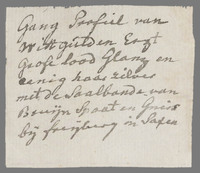 Gang Profiel van
Witgulden Erzt
Grofe lood Glanz en
eenig haar zilver
met de Saalbande van
Bruijn Spaat en Gneis
bij freyberg in Saxen